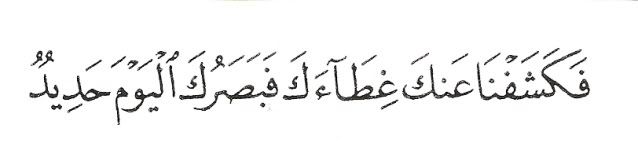 فَكَشَفْنَا عَنكَ غِطَآءَكَ فَبَصَرُكَ ٱلْيَوْمَ حَدِيدٌ